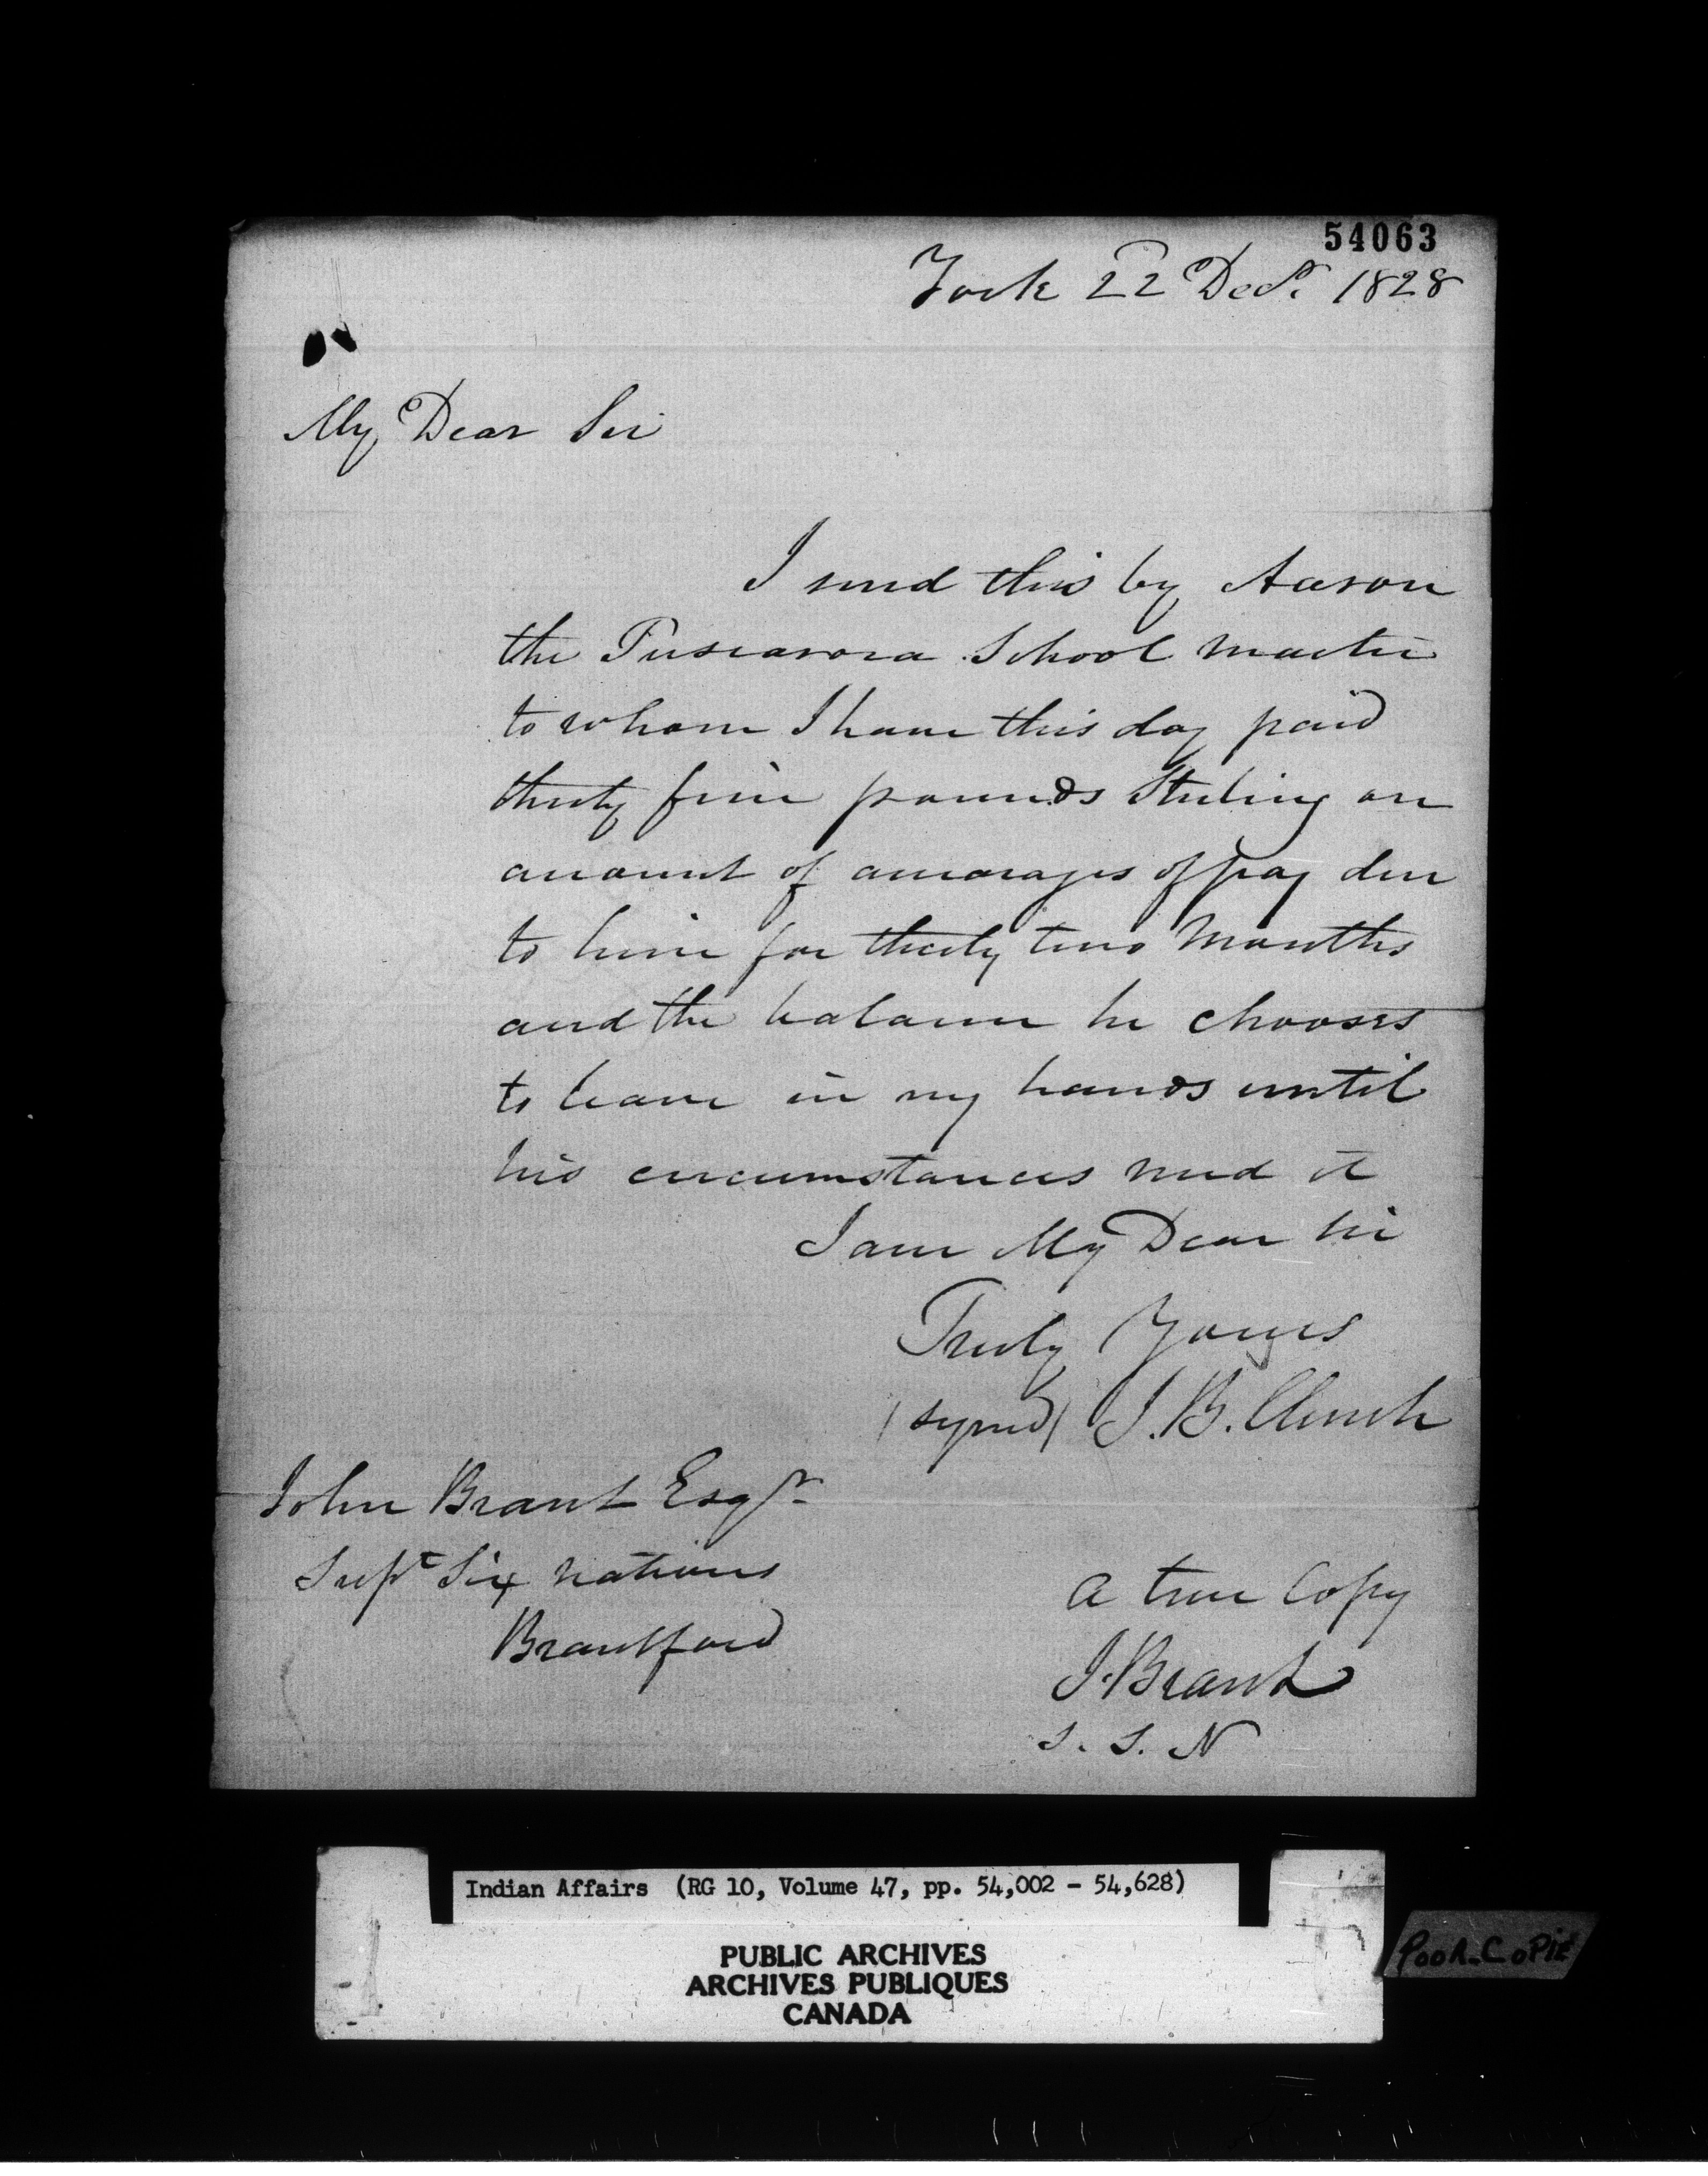 54063
York 22 Decr. 1828
My Dear Sir
I send this by Aaron
the Tuscarora School Master
to whom I have this day paid
thirty five pounds Sterling on
account of arrearages of pay due
to him for thirty two Months
and the balance he chooses
to leave in my hands until
his circumstances need it
I am My Dear Sir
Truly Yours
(signed) J. B. Clench
John Brant Esqr
Supt Six Nations
Brantford
A true Copy
J. Brant
S. S. N
Indian Affairs (RG 10, Volume 47, pp. 54,002 - 54,628)
PUBLIC ARCHIVES
ARCHIVES PUBLIQUES
CANADA
POOR COPIE